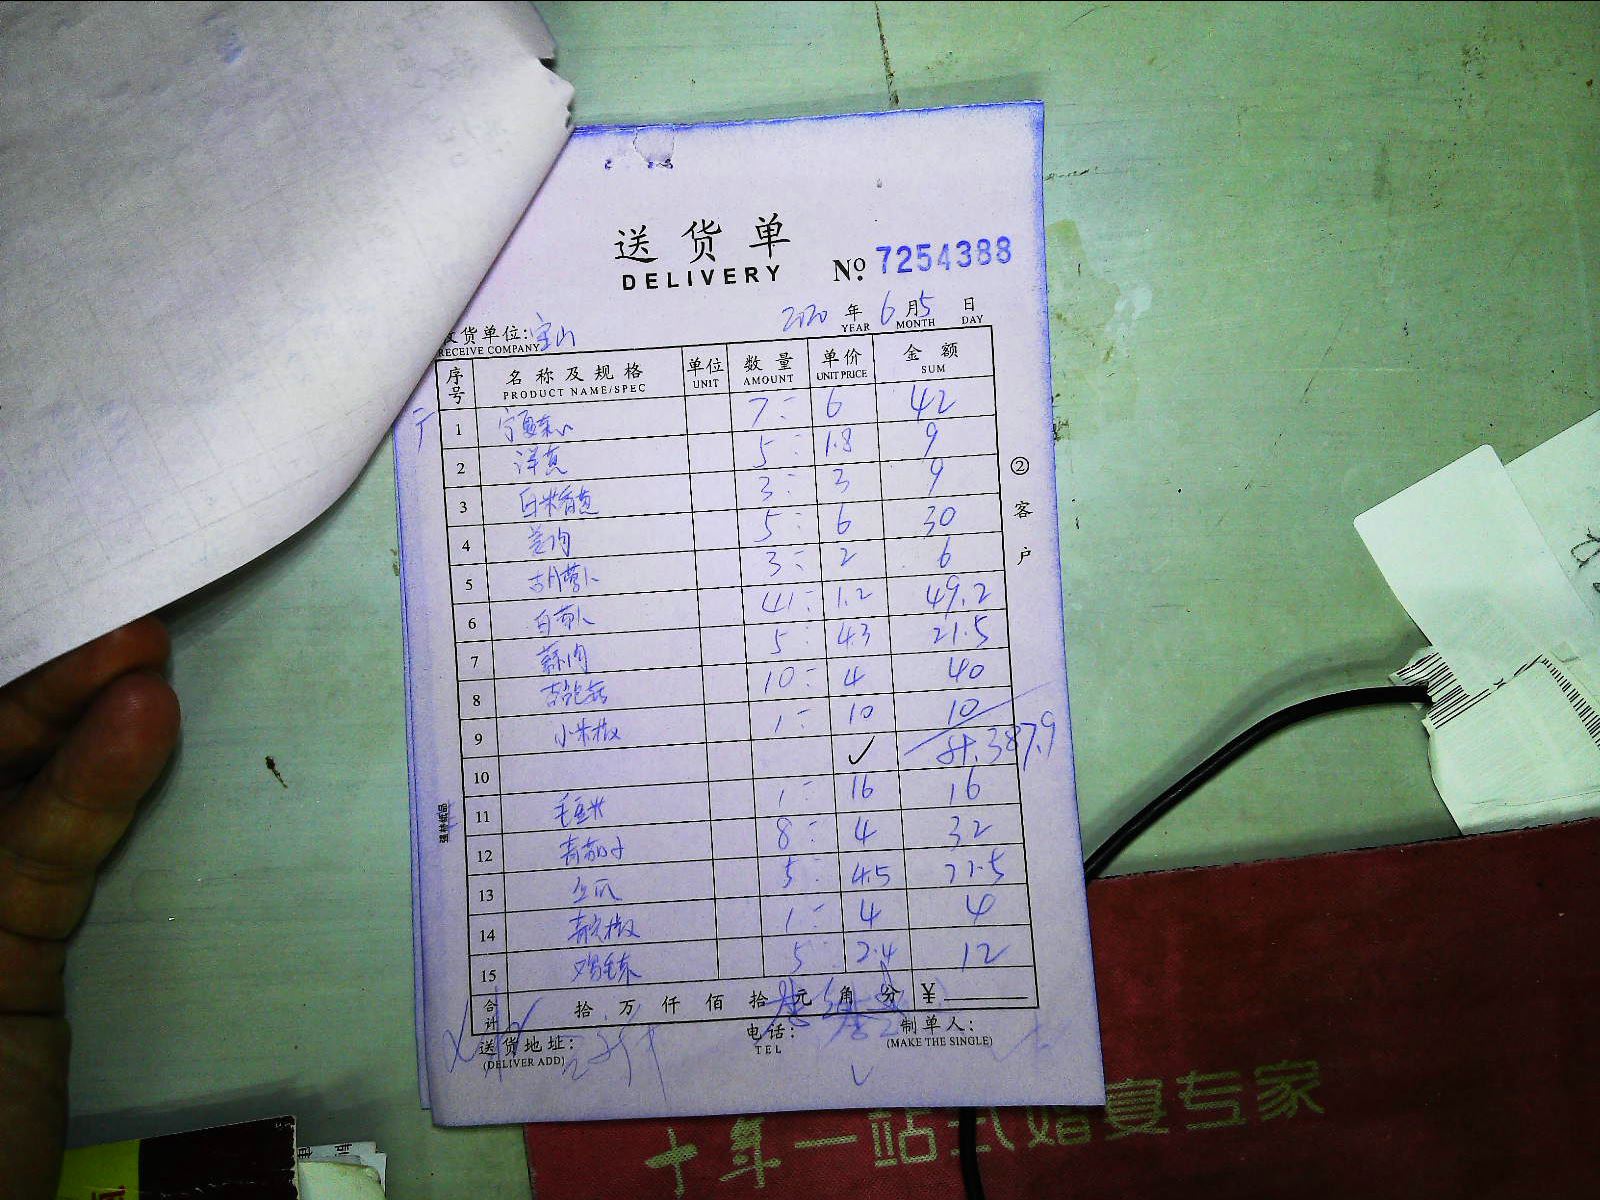 送货单
DELIVERY
No. 7254388
2020 年 6 月 5 日
YEAR MONTH DAY
收货单位: 宝山
RECEIVE COMPANY
序号 名称及规格 单位 数量 单价 金额
PRODUCT NAME/SPEC UNIT AMOUNT UNIT PRICE SUM
1 宁夏菜心 7 6 42
2 洋葱 5 1.8 9
3 白米香葱 3 3 9
4 姜肉 5 6 30
5 胡萝卜 3 2 6
6 白萝卜 41 1.2 49.2
7 蒜肉 5 4.3 21.5
8 杏鲍菇 10 4 40
9 小米椒 1 10 10
10 ✓ 387.9
11 毛豆米 1 16 16
12 青茄子 8 4 32
13 5 4.5 22.5
14 青尖椒 1 4 4
15 鸡毛菜 5 2.4 12
合计 拾 万 仟 佰 拾 元 角 分 ¥
送货地址:
(DELIVER ADD)
电话:
TEL
制单人:
(MAKE THE SINGLE)
②客户
强林纸品
十年一站式婚宴专家